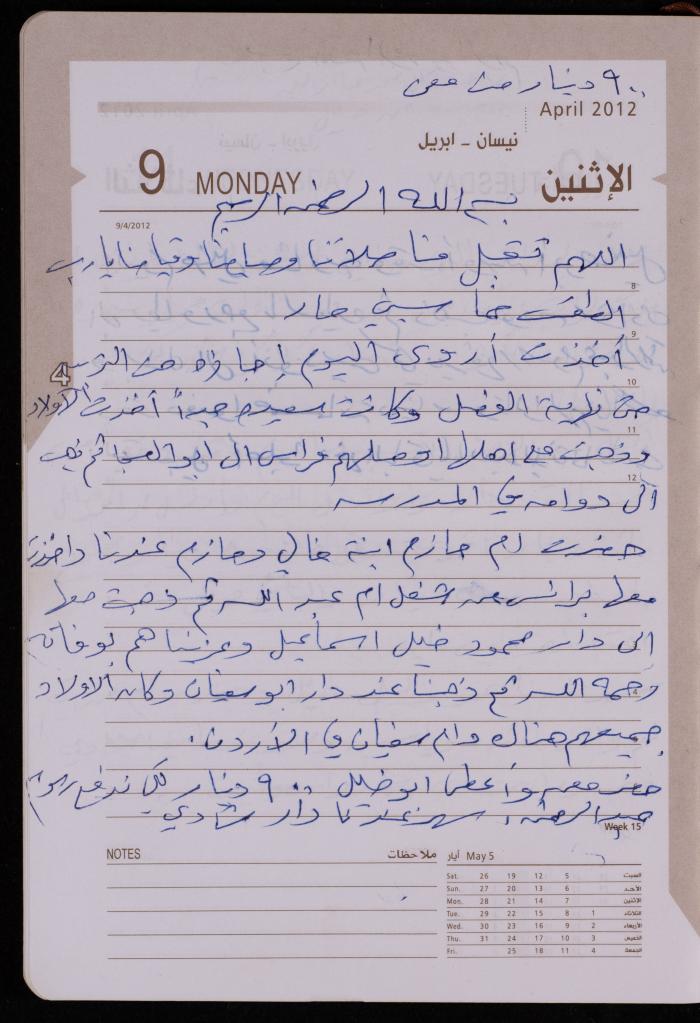 ٩٠٠ دينار من معن
April 2012
نيسان - ابريل
9 MONDAY الإثنين
بسم الله الرحمن الرحيم
9/4/2012
اللهم تقبل منا صلاتنا وصيامنا وقيامنا يا رب
8
الطقس غائم حار
9
أخذت أروى اليوم إجازة من
10
من نزهة وكانت سعيدة جداً أخذت الأولاد
11
وذهبت مع اهلها اوصلهم فراس الى ابو ثم ذهب
12
الى دوامه في المدرسه
حضرت ام حازم ابنة خالي وحازم عندنا واخذت
معها من شغل ام عبد الله ثم ذهبت معها
الى دار محمود خليل اسماعيل وعزيناهم بوفاته
رحمه الله ثم ذهبنا عند دار ابو سفيان وكان الاولاد
4
جميعهم هناك وام سفيان في الأردن.
حضر معن وأعطى ابو خليل ٩٠٠ دينار لكي ندفع
عبد الرحمن، سهر عندنا دار شادي.
Week 15
NOTES ملاحظات
أيار May 5
Sat. 26 19 12 5 السبت
Sun. 27 20 13 6 الأحد
Mon. 28 21 14 7 الإثنين
Tue. 29 22 15 8 1 الثلاثاء
Wed. 30 23 16 9 2 الأربعاء
Thu. 31 24 17 10 3 الخميس
Fri. 25 18 11 4 الجمعة